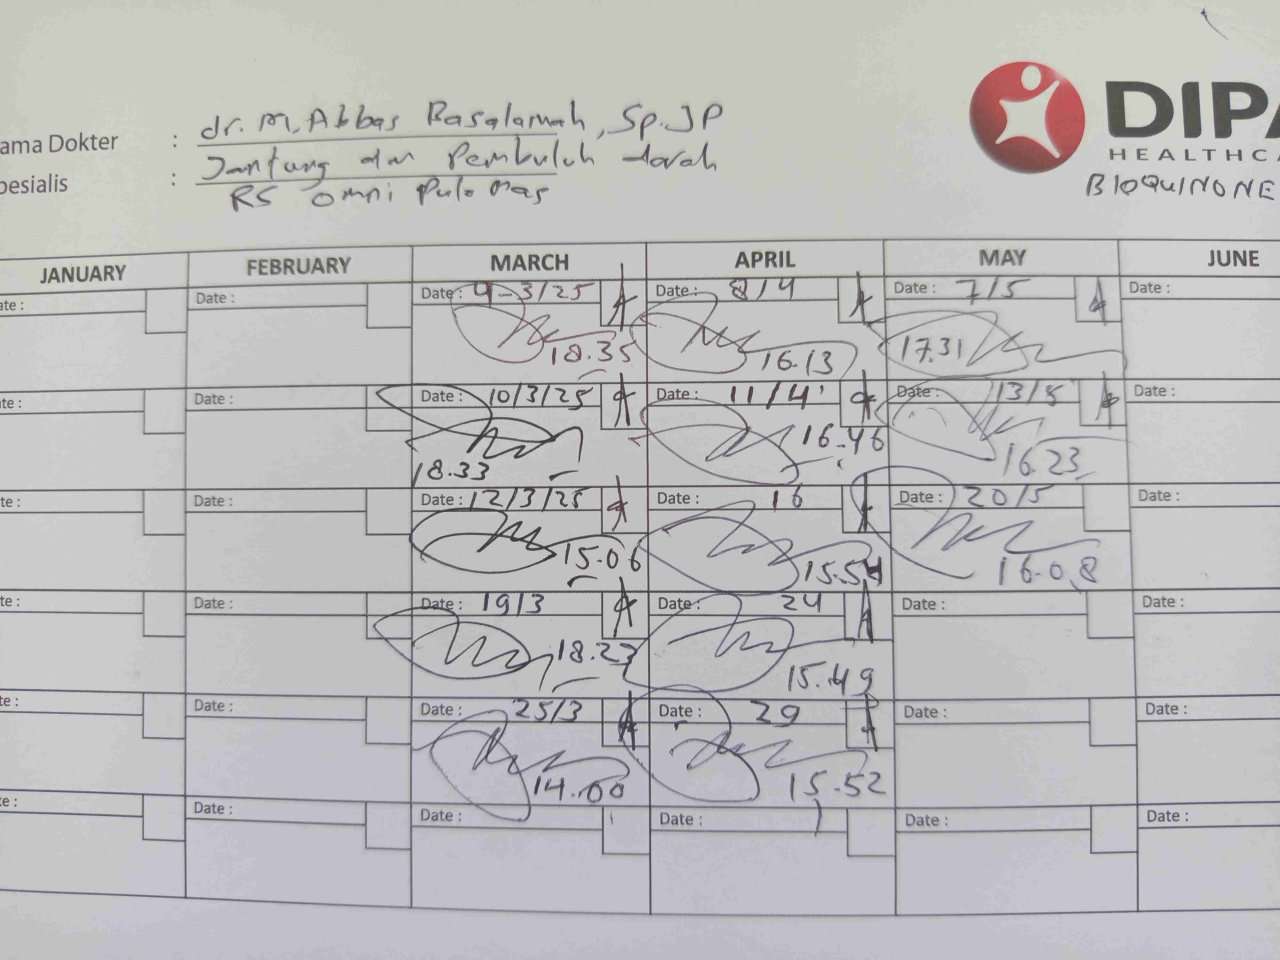 ama Dokter : dr. M. Abbas Basalamah, Sp.JP
pesialis : Jantung dan Pembuluh darah
RS Omni Pulo Mas
DIPA
HEALTHCA
BIOQUINONE
JANUARY FEBRUARY MARCH APRIL MAY JUNE
ate : Date : Date : 4-3/25 Date : 8/4 Date : 7/5 Date :
18.35 16.13 17.31
ate : Date : Date : 10/3/25 Date : 11/4 Date : 13/5 Date :
18.33 16-46 16.23
te : Date : Date : 12/3/25 Date : 16 Date : 20/5 Date :
15.06 15.54 16.08
te : Date : Date : 19/3 Date : 24 Date : Date :
18.23 15.49
te : Date : Date : 25/3 Date : 29 Date : Date :
14.00 15.52
e : Date : Date : Date : Date : Date :